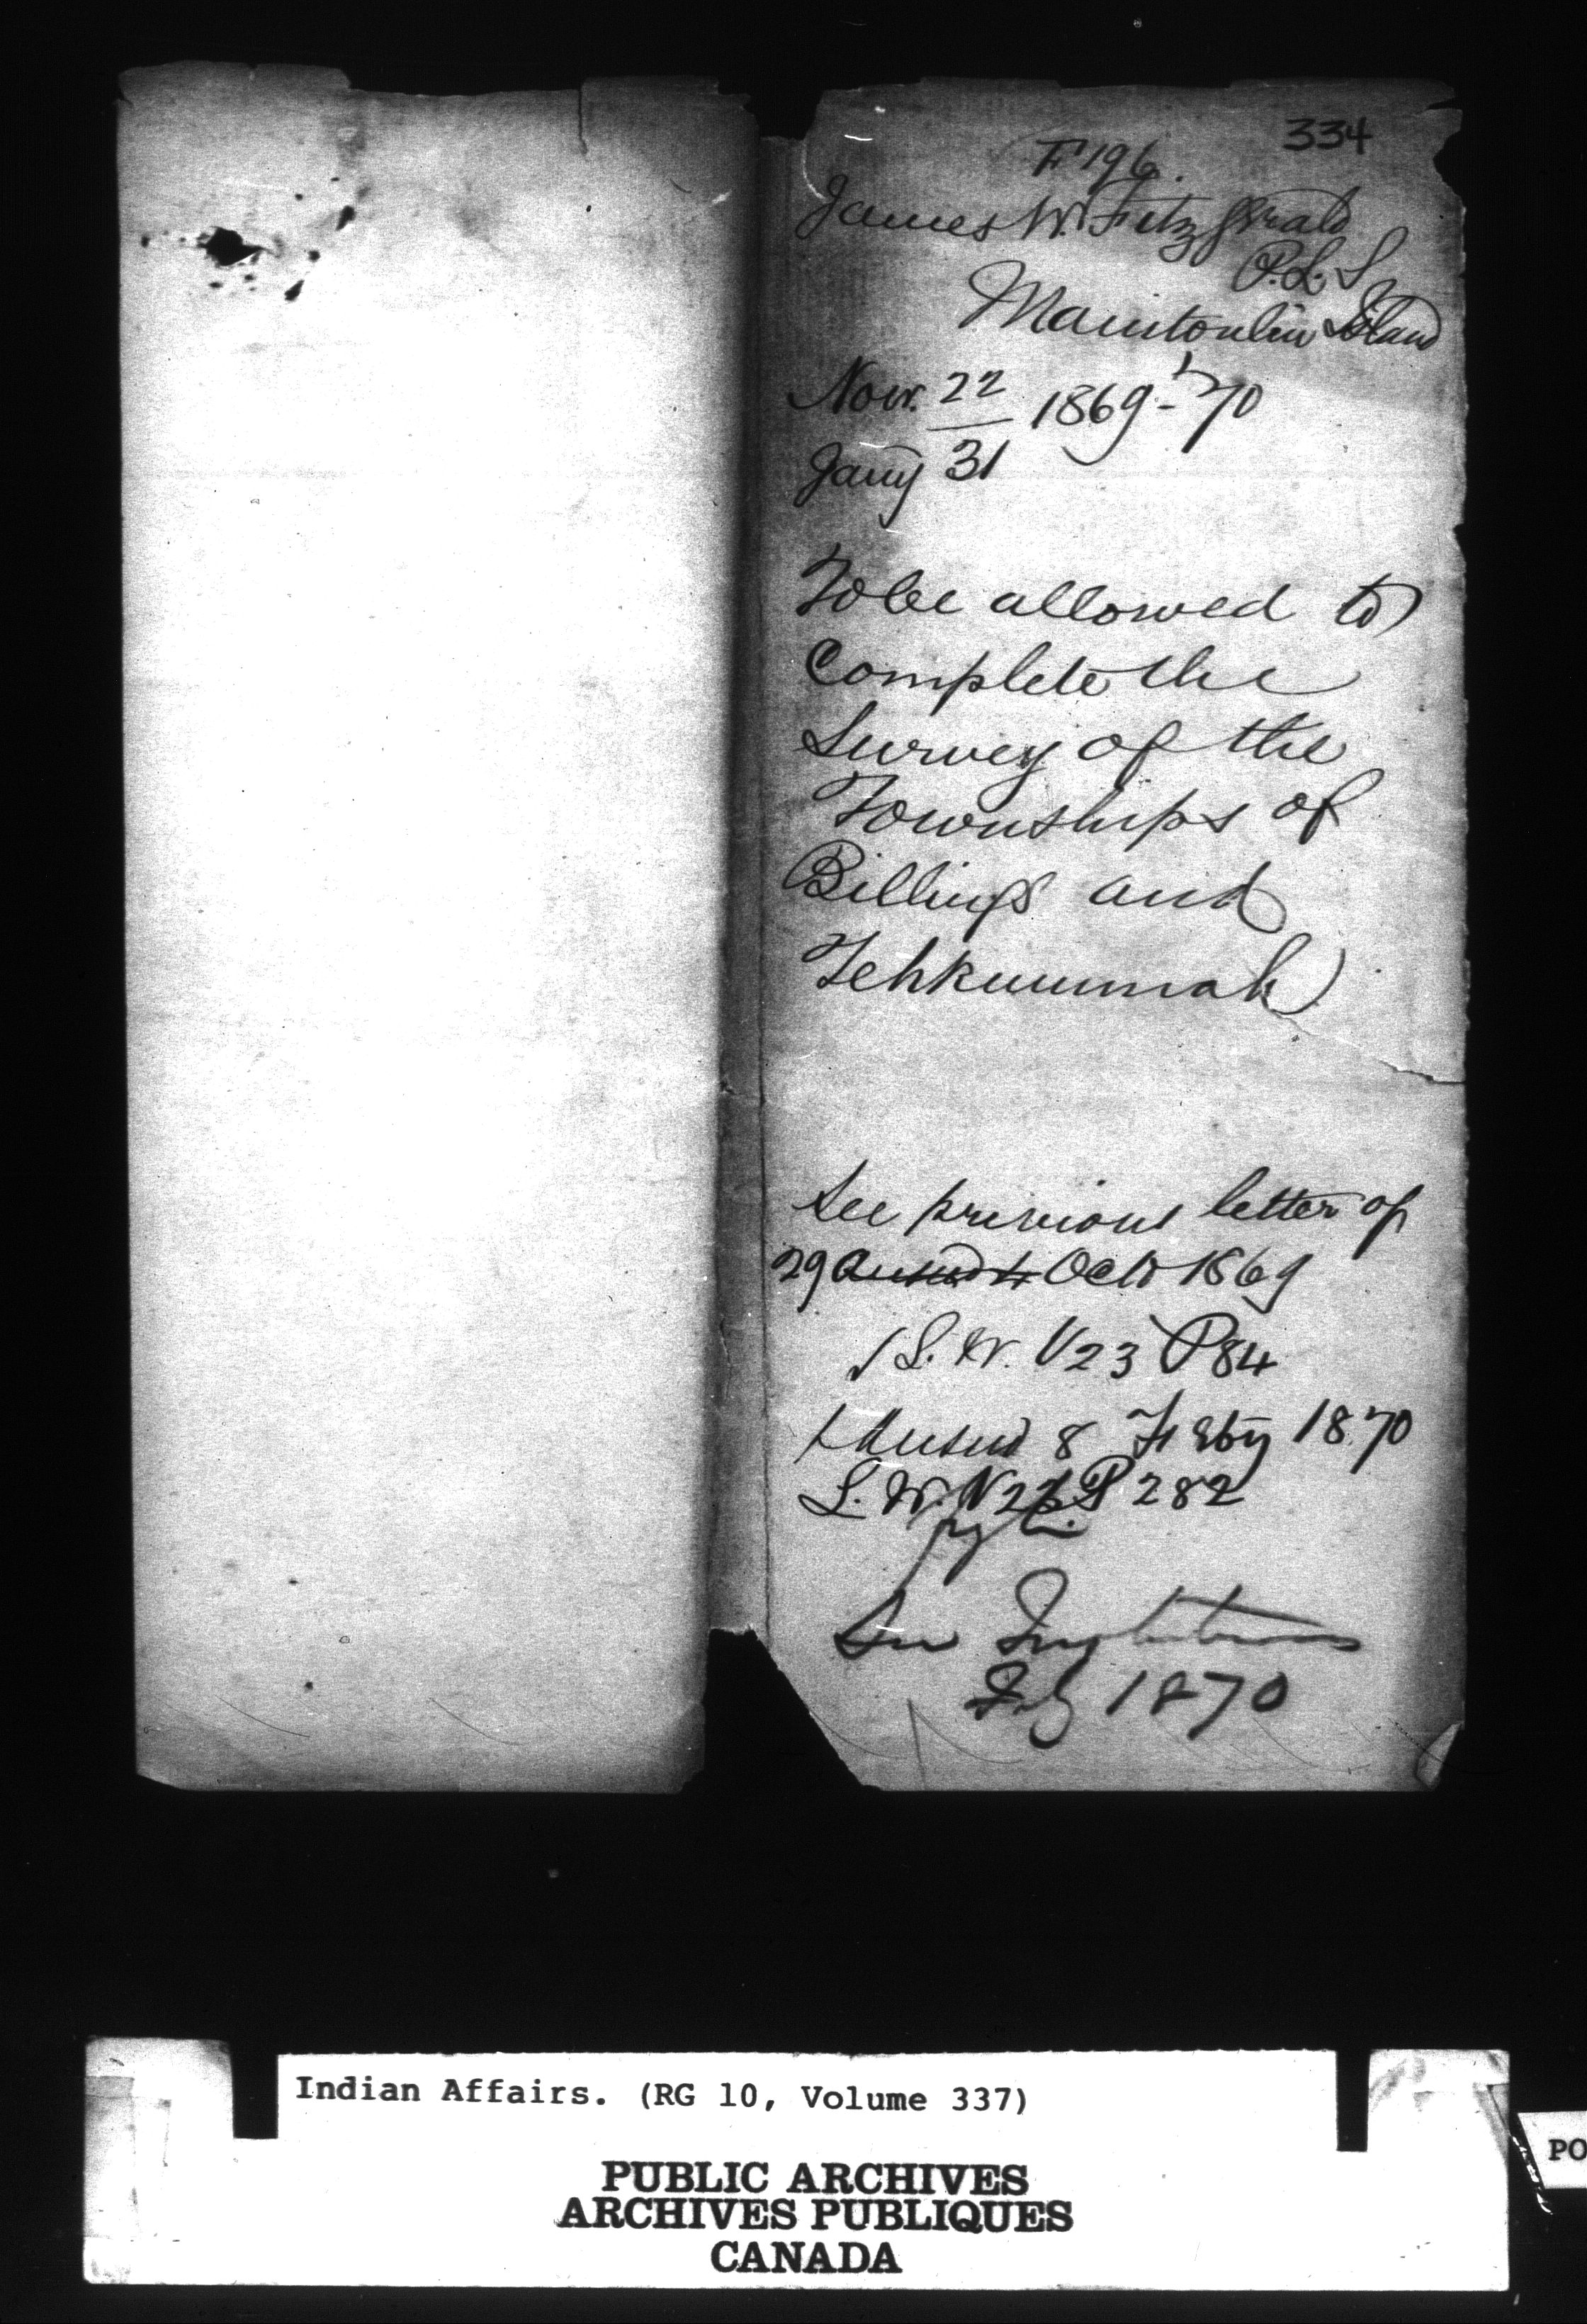 334
F 196.
James W. Fitzgerald
P.L.S
Manitoulin Island
Nov. 22 1869-'70
Jany 31
To be allowed to
Complete the
Survey of the
Townships of
Billings and
Tehkummah
See previous letter of
29 Octr 1869
L.W. V23 P84
Ansd 8 Feby 1870
L.W. V23 P 282
See Instructions
Feby 1870
Indian Affairs. (RG 10, Volume 337)
PUBLIC ARCHIVES
ARCHIVES PUBLIQUES
CANADA
PO